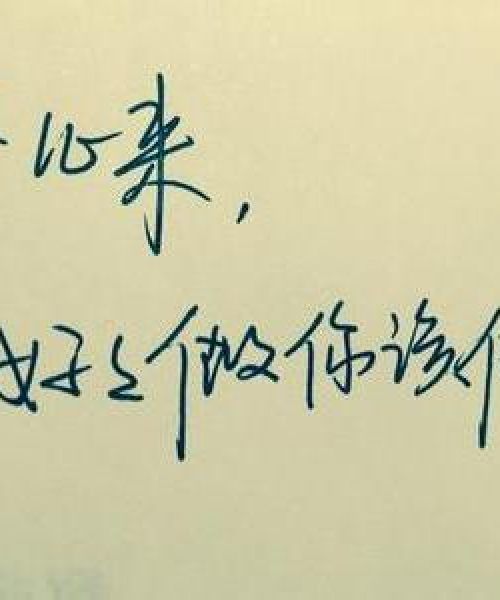 心来，
好々做你该